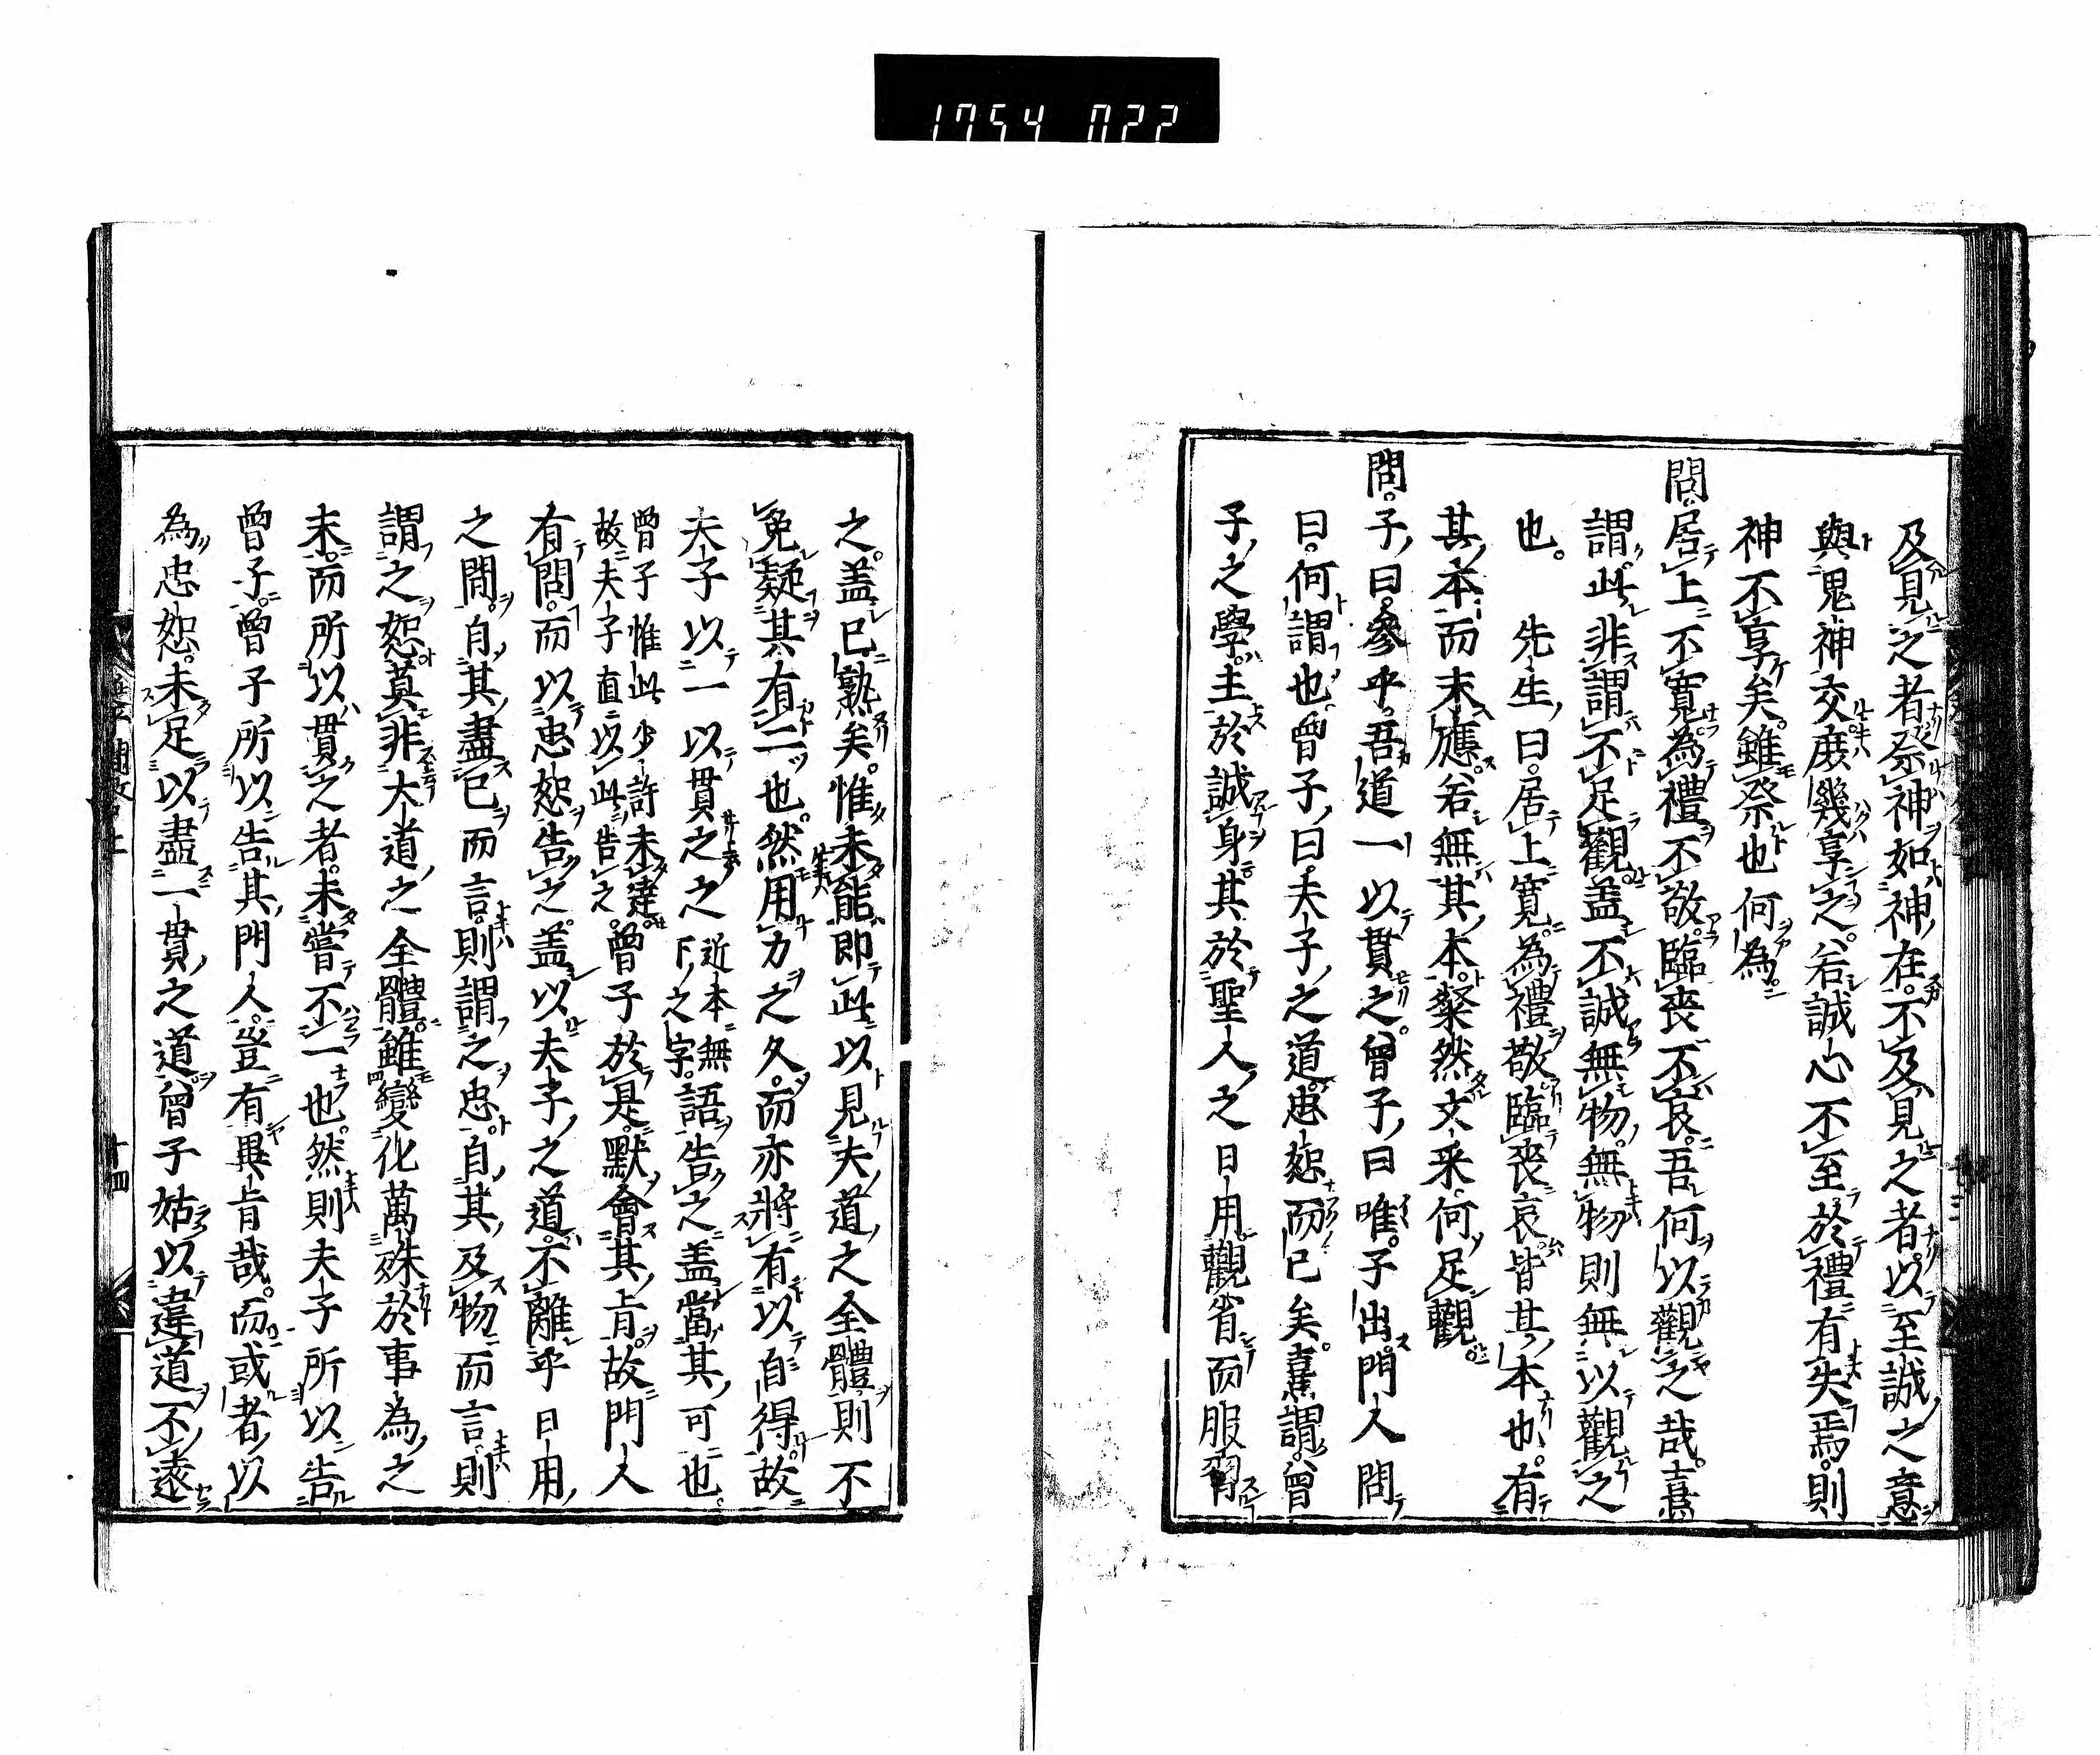 1754 022
及見之者祭神如神在不及見之者以至誠之意
與鬼神交庶幾享之若誠心不至於禮有失焉則
神不享矣雖祭也何為
問居上不寬為禮不敬臨喪不哀吾何以觀之哉熹
謂此非謂不足觀蓋不誠無物無物則無以觀之
也 先生曰居上寬為禮敬臨喪哀皆其本也有
其本而末應若無其本粲然文采何足觀
問子曰參乎吾道一以貫之曾子曰唯子出門人問
曰何謂也曾子曰夫子之道忠恕而已矣熹謂曾
子之學主於誠身其於聖人之日用觀省而服習
之蓋已熟矣惟未能即此以見夫道之全體則不
免疑其有二也然用力之久而亦將有以自得故
夫子以一以貫之之近本無下之字語告之蓋當其可也
曾子惟此少許未達故夫子直以此告之曾子於是默會其旨故門人
有問而以忠恕告之蓋以夫子之道不離乎日用
之間自其盡已而言則謂之忠自其及物而言則
謂之恕莫非大道之全體雖變化萬殊於事為之
末而所以貫之者未嘗不一也然則夫子所以告
曾子曾子所以告其門人豈有異旨哉而或者以
為忠恕未足以盡一貫之道曾子姑以違道不遠
十四